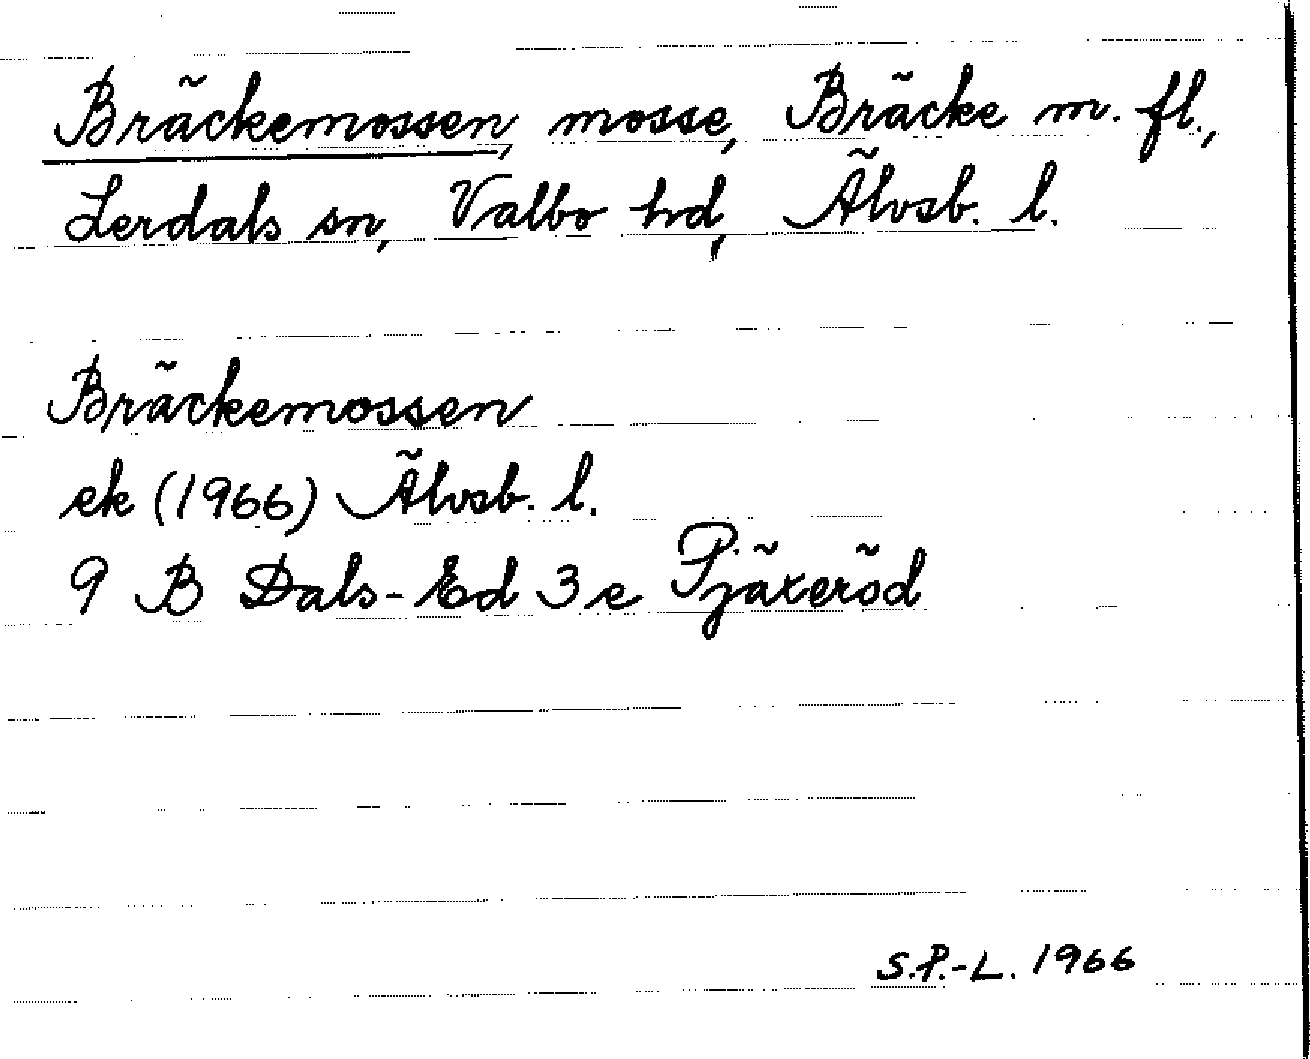 Bräckemossen, mosse, Bräcke m. fl.,
Lerdals sn, Valbo hd, Älvsb. l.
Bräckemossen
ek (1966) Älvsb. l.
9 B Dals-Ed 3 e Pjäxeröd
S.P.-L. 1966